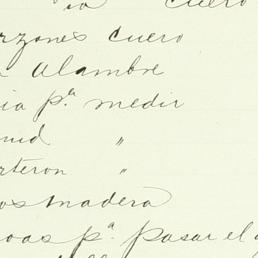 cuero
rzones cuero
Alambre
ia pª medir
nud "
rteron "
os madera
oas pª pasar el a